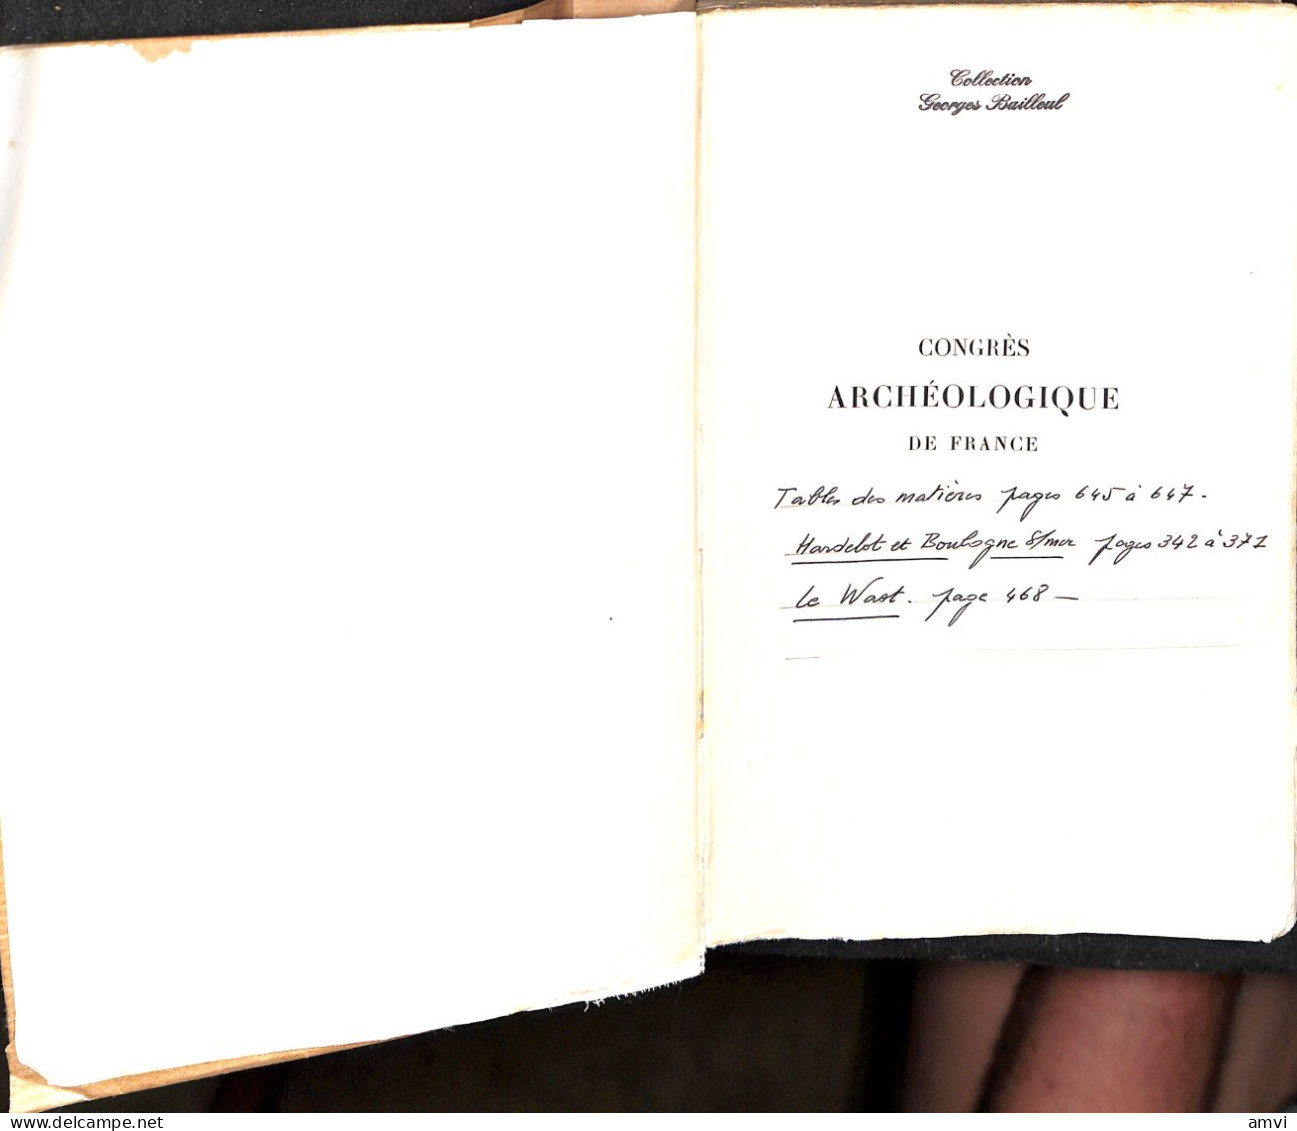 Collection
Georges Bailleul
CONGRÈS
ARCHÉOLOGIQUE
DE FRANCE
Tables des matières pages 645 à 647.
Hardelot et Boulogne s/mer pages 342 à 371
Le Wast. page 468 —
www.delcampe.net
amvi